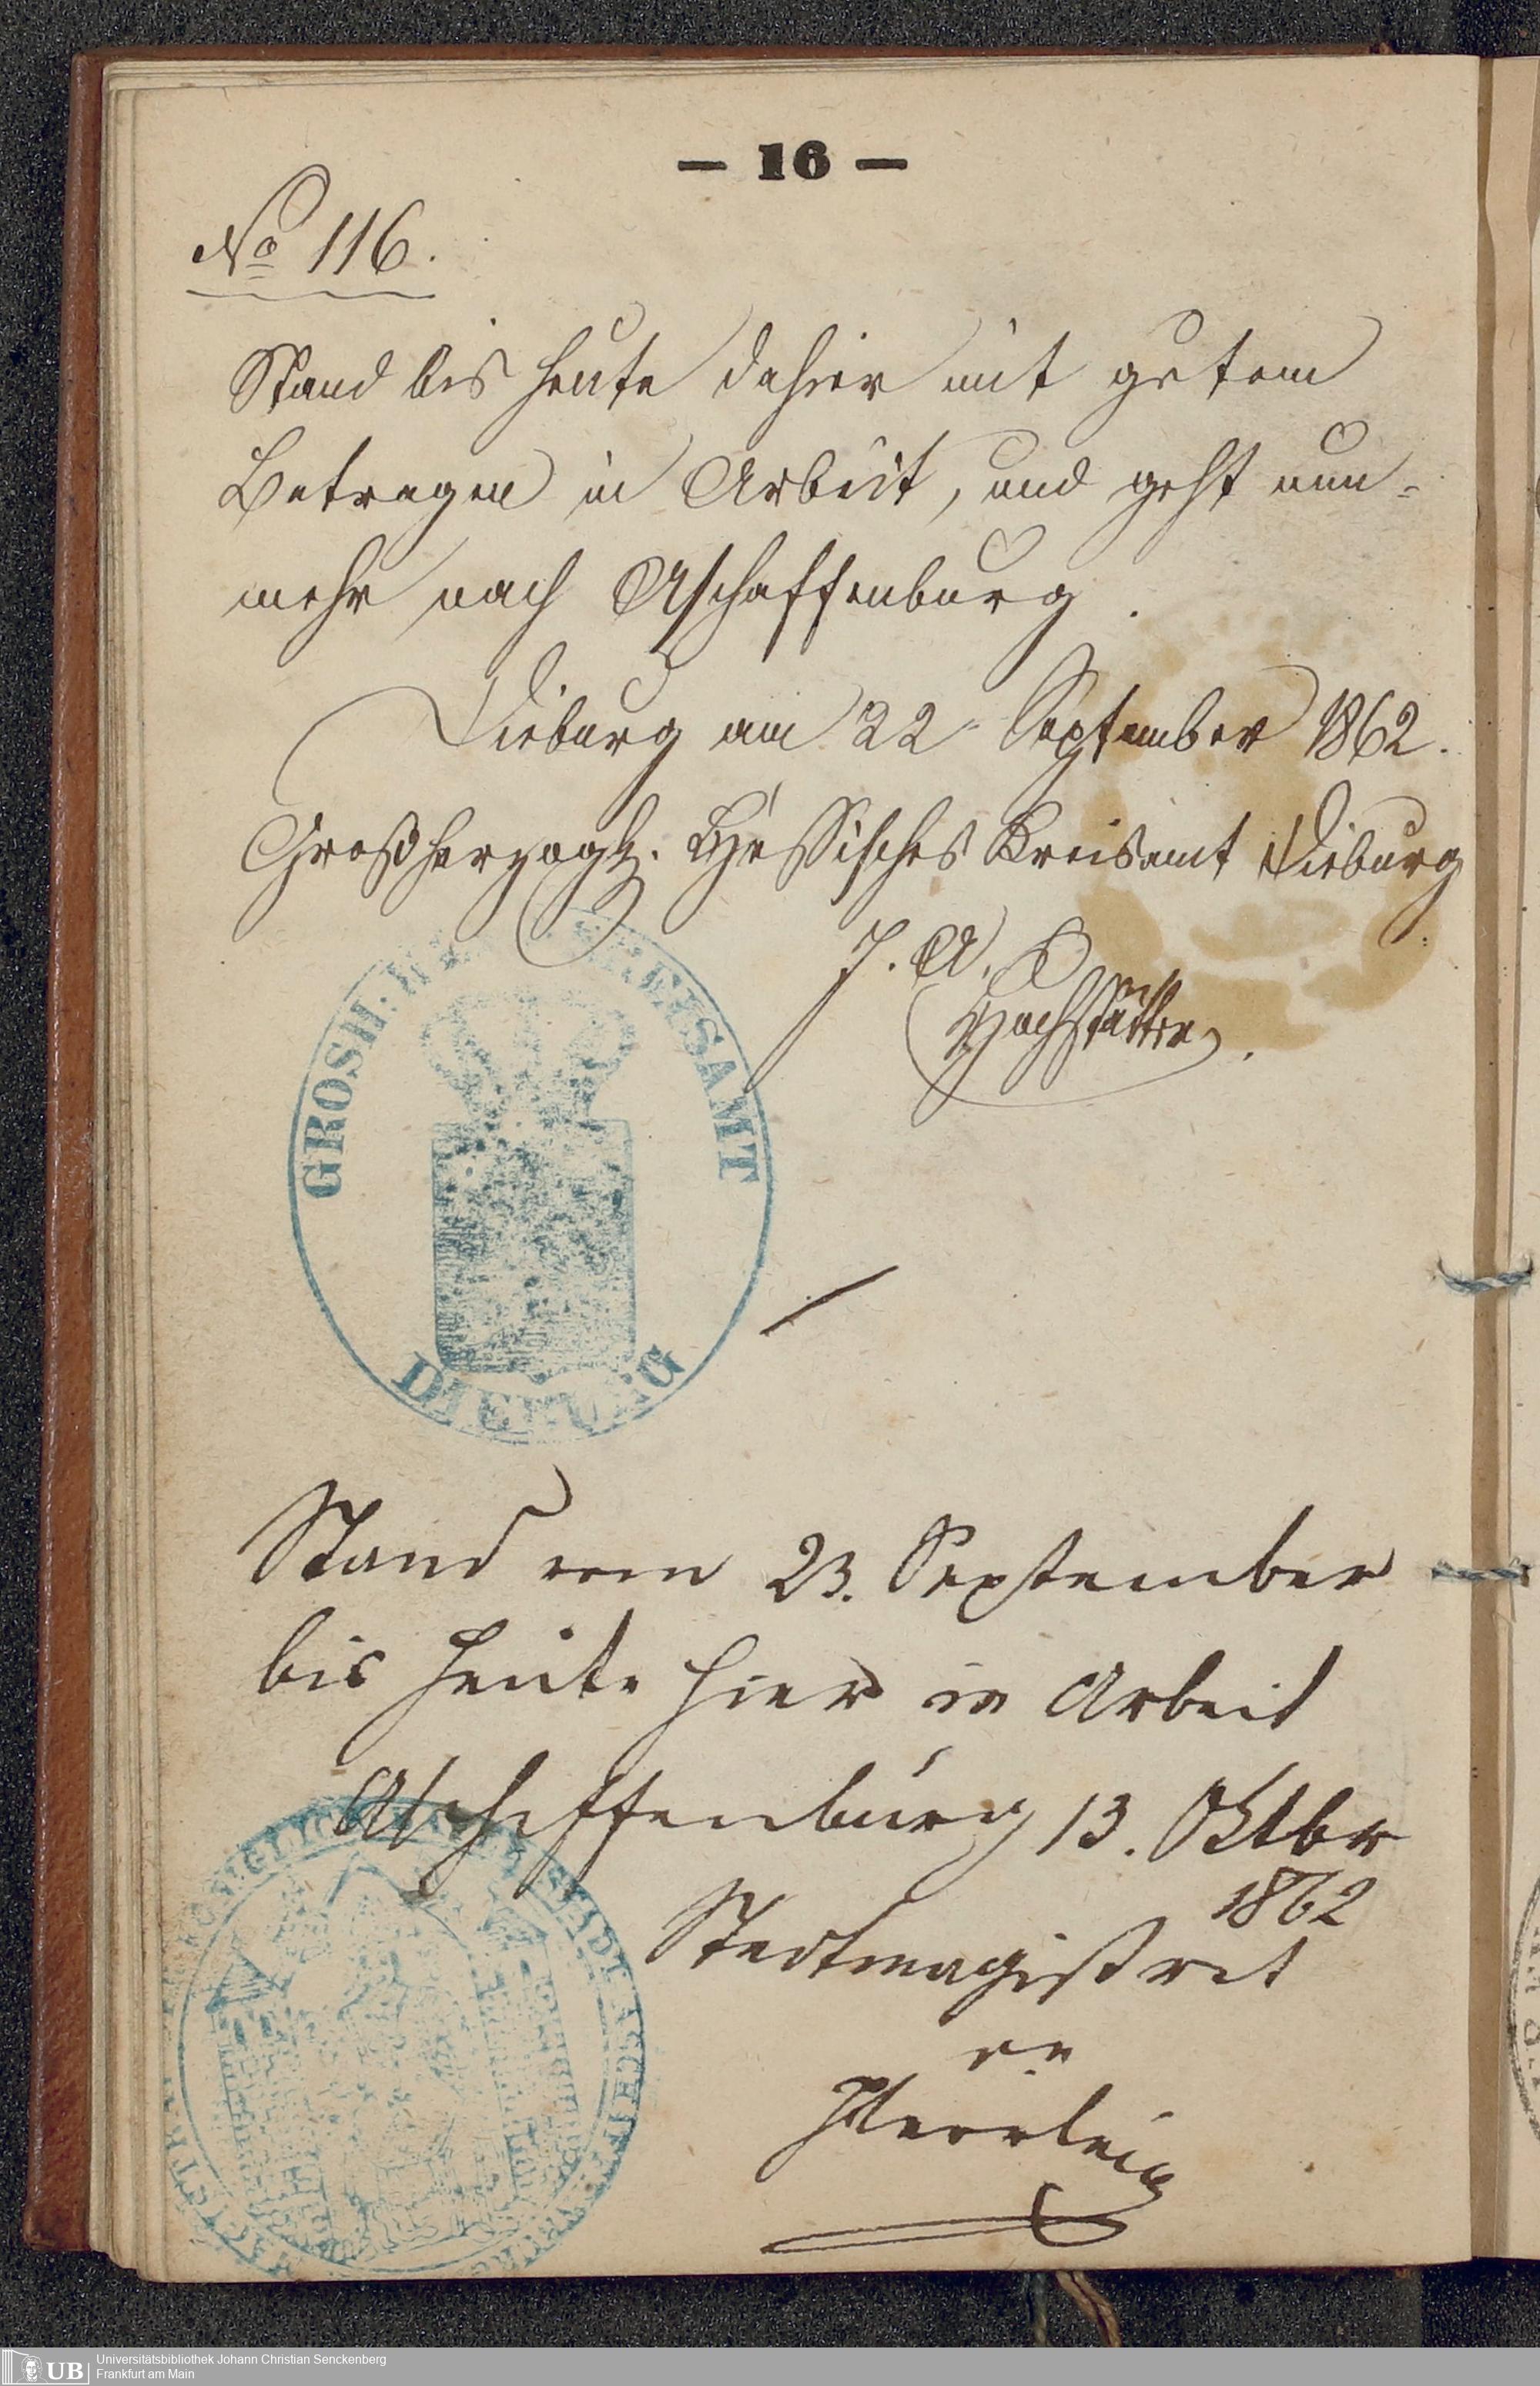 — 16 —
No 116.
Stand bis heute dahier mit gutem
Betragen in Arbeit, und geht nun-
mehr nach Aschaffenburg.
Dieburg am 22 September 1862.
Großherzogl. Hessisches Kreisamt Dieburg
J. A.
Hochstätter.
GROSH: KREISAMT
DIEBURG
Stand vom 23. September
bis heute hier in Arbeit
Aschaffenburg 13. Oktbr
1862
Stadtmagistrat
Herrlein
STADT ASCHAFFENBURG
UB
Universitätsbibliothek Johann Christian Senckenberg
Frankfurt am Main